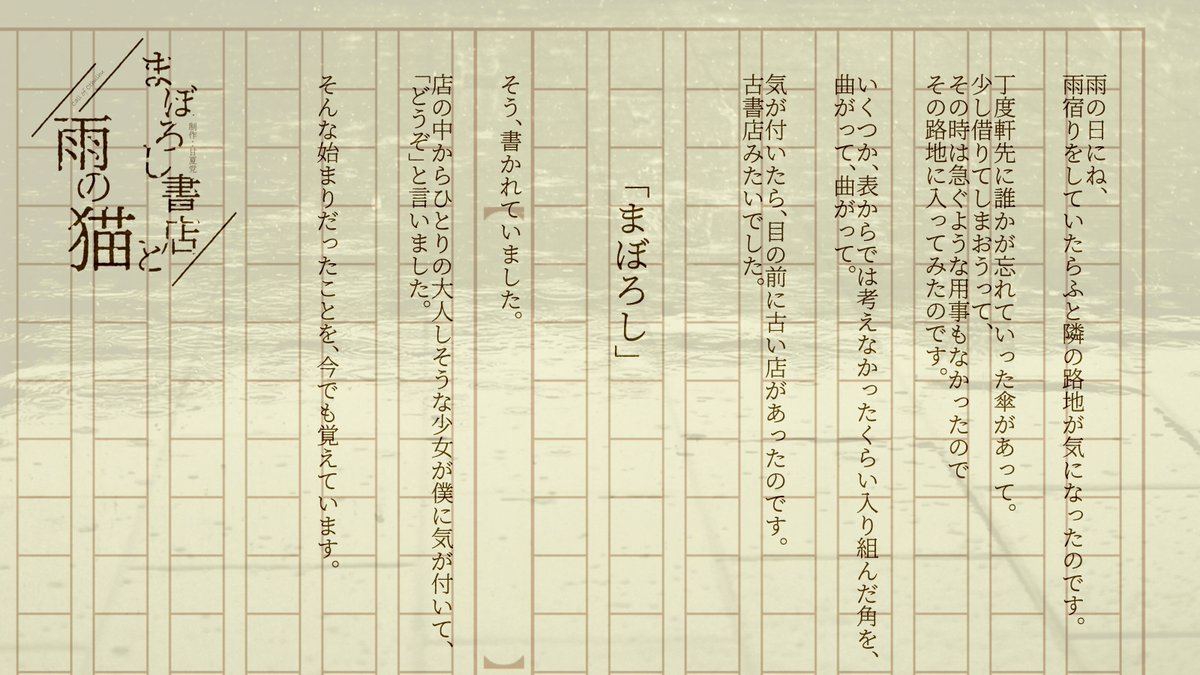 雨の日にね、
雨宿りをしていたらふと隣の路地が気になったのです。
丁度軒先に誰かが忘れていった傘があって。
少し借りてしまおうって、
その時は急ぐような用事もなかったので
その路地に入ってみたのです。
いくつか、表からでは考えなかったくらい入り組んだ角を、
曲がって、曲がって。
気が付いたら、目の前に古い店があったのです。
古書店みたいでした。
「まぼろし」
そう、書かれていました。
店の中からひとりの大人しそうな少女が僕に気が付いて、
「どうぞ」と言いました。
そんな始まりだったことを、今でも覚えています。
まぼろし書店と
雨の猫